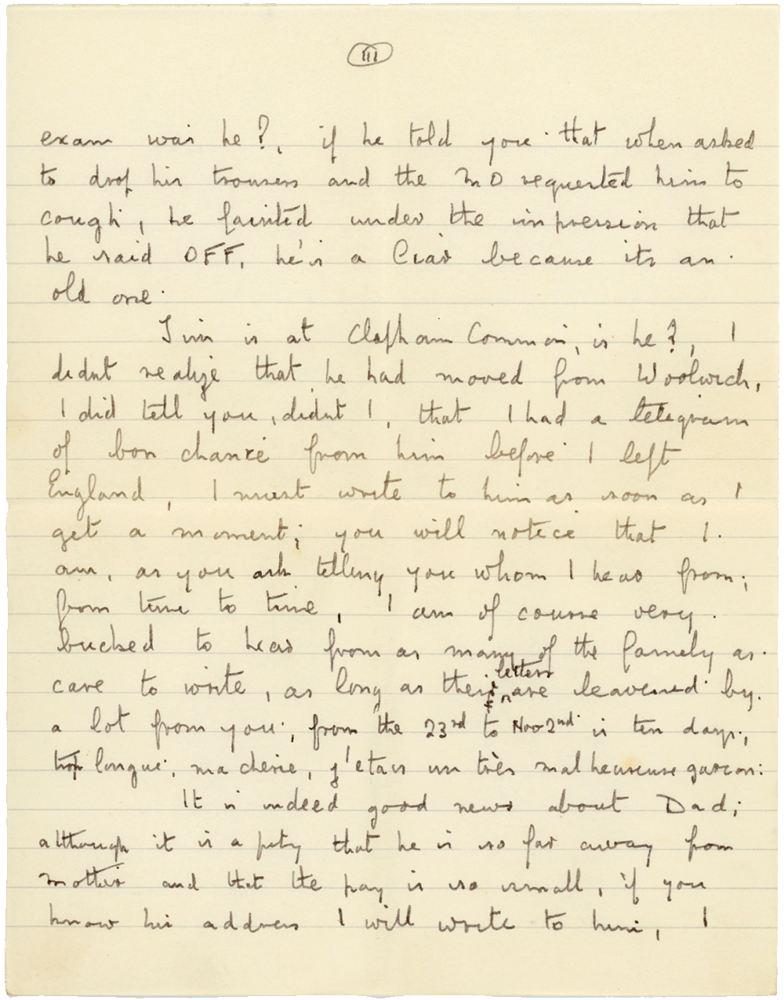 III
exam was he?, if he told you that when asked
to drop his trousers and the MO requested him to
cough, he fainted under the impression that
he said OFF, he's a liar because its an
old one.
Jim is at Clapham Common, is he?, I
didnt realize that he had moved from Woolwich,
I did tell you, didnt I, that I had a telegram
of bon chance from him before I left
England, I must write to him as soon as I
get a moment; you will notice that I
am, as you ask telling you whom I hear from;
from time to time, I am of course very
bucked to hear from as many of the family as
care to write, as long as their letters are leavened by
a lot from you; from the 23rd to Nov 2nd is ten days;
trop longue, ma cherie, j'etais un très malheureuse garcon:
It is indeed good news about Dad;
although it is a pity that he is so far away from
mother and that the pay is so small, if you
know his address I will write to him, I